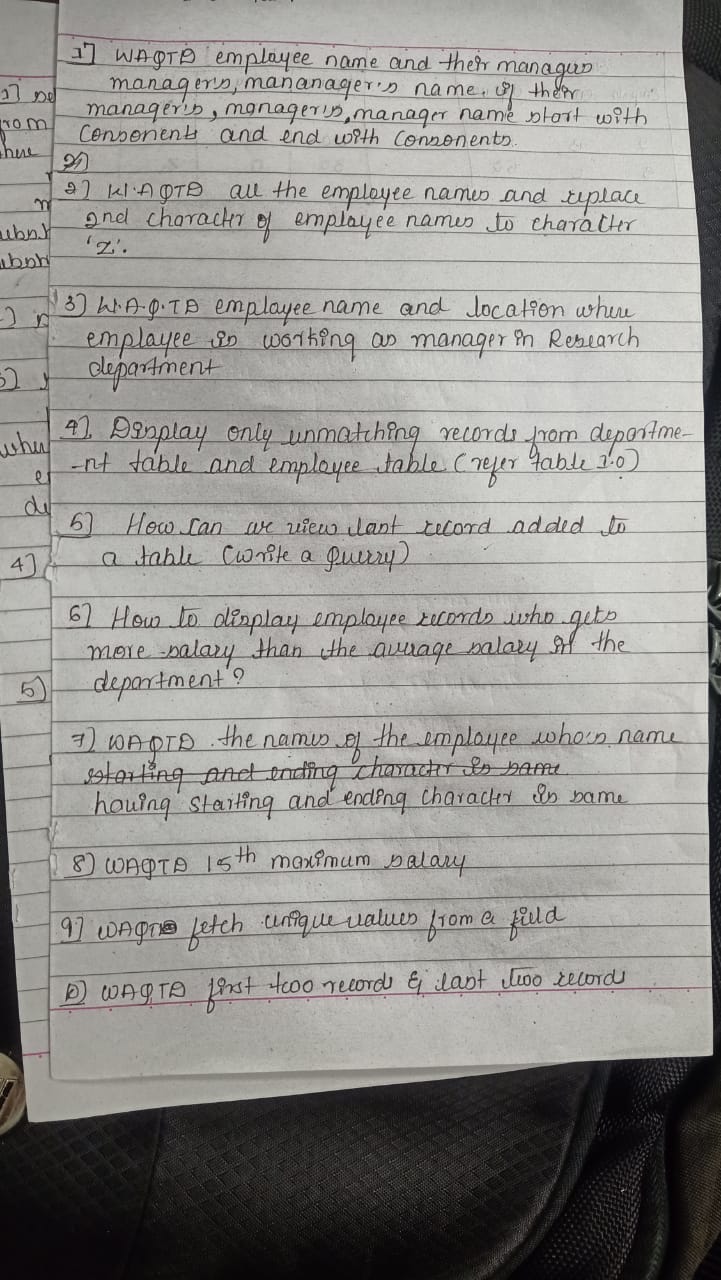 1] WAQTD employee name and their managers
managers, mananager's name. if their
manager's, manager's, manager name start with
Consonents and end with Consonents.
2)
2] W.AQTD all the employee names and replace
2nd character of employee names to character
'Z'.
3] W.A.Q.TD employee name and location where
employee is working as manager in Research
department
4] Display only unmatching records from departme-
-nt table and employee table (refer table 1.0)
5] How can we view last record added to
a table (write a Querry)
6] How to display employee records who gets
more salary than the average salary of the
department?
7] WAQTD the names of the employee who's name
starting and ending character is same
having starting and ending Character is same
8) WAQTD 15th maximum salary
9] WAQTD fetch unique values from a field
10) WAQTD first two records & last two records
1] 
rom
here
where
4]
5)